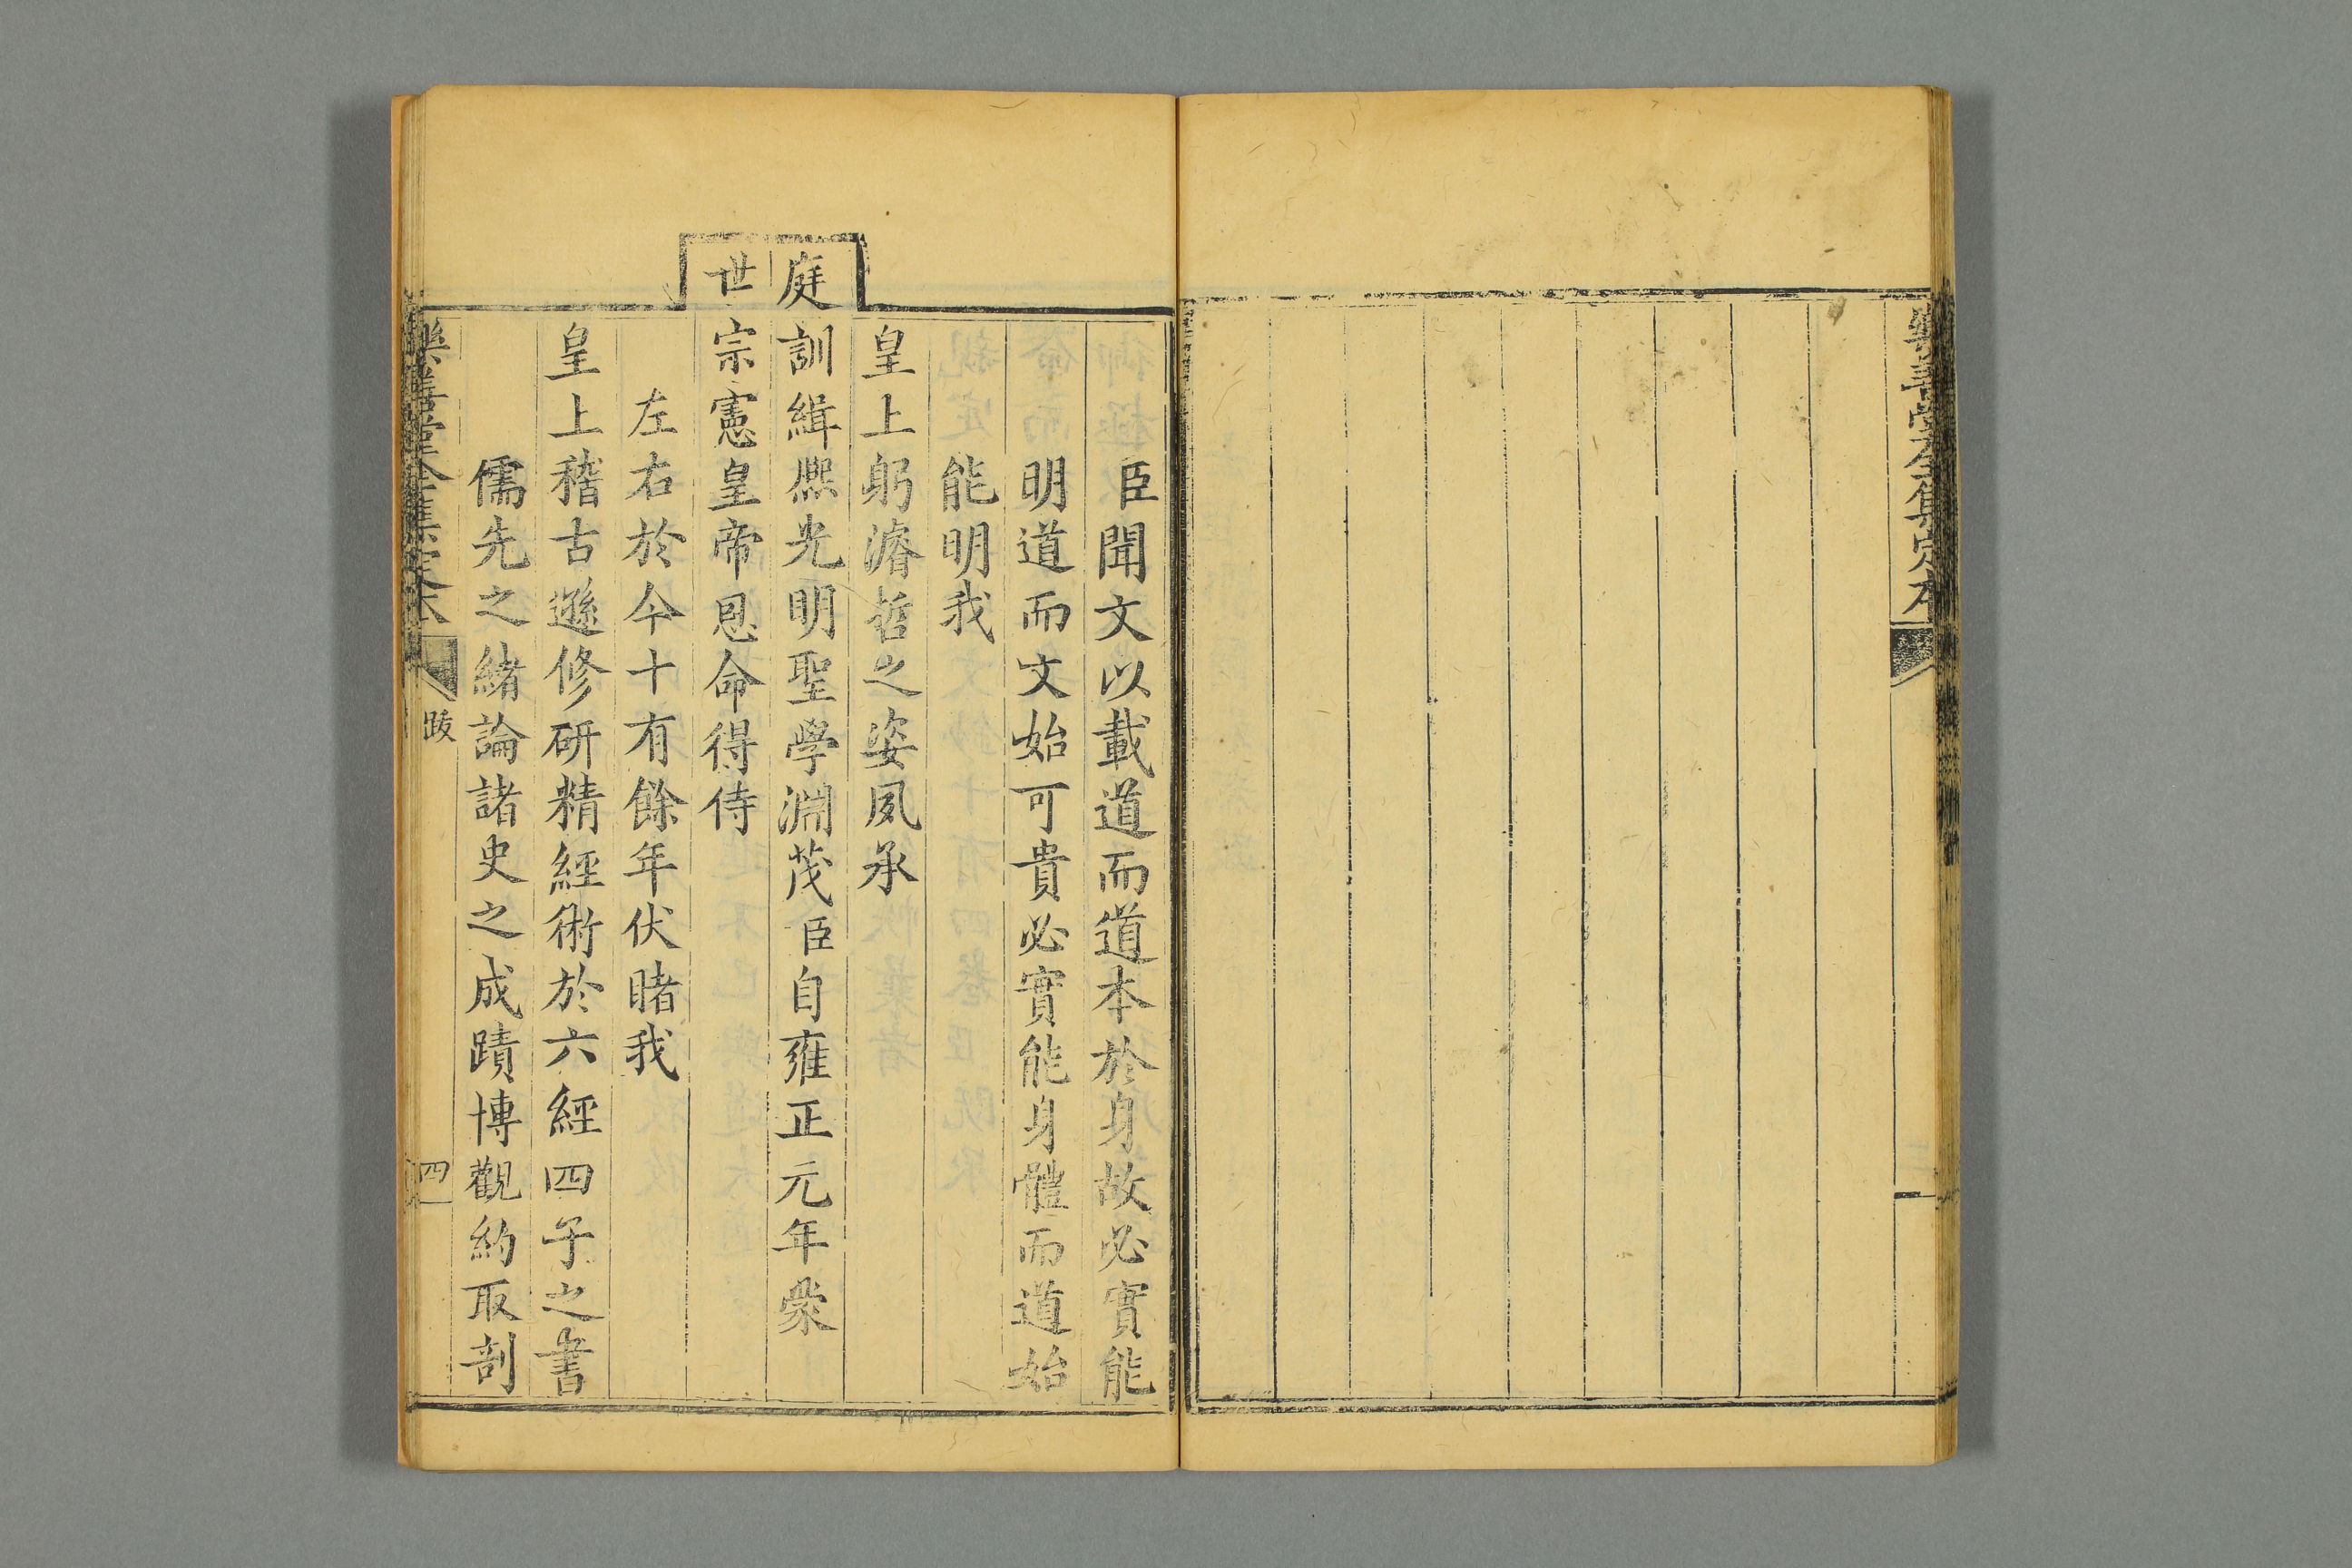 樂善堂全集定本
臣聞文以載道而道本於身故必實能
明道而文始可貴必實能身體而道始
能明我
皇上躬濬哲之姿夙承
庭訓緝熙光明聖學淵茂臣自雍正元年蒙
世宗憲皇帝恩命得侍
左右於今十有餘年伏睹我
皇上稽古遜修研精經術於六經四子之書
儒先之緒論諸史之成蹟博觀約取剖
樂善堂全集定本
跋
四